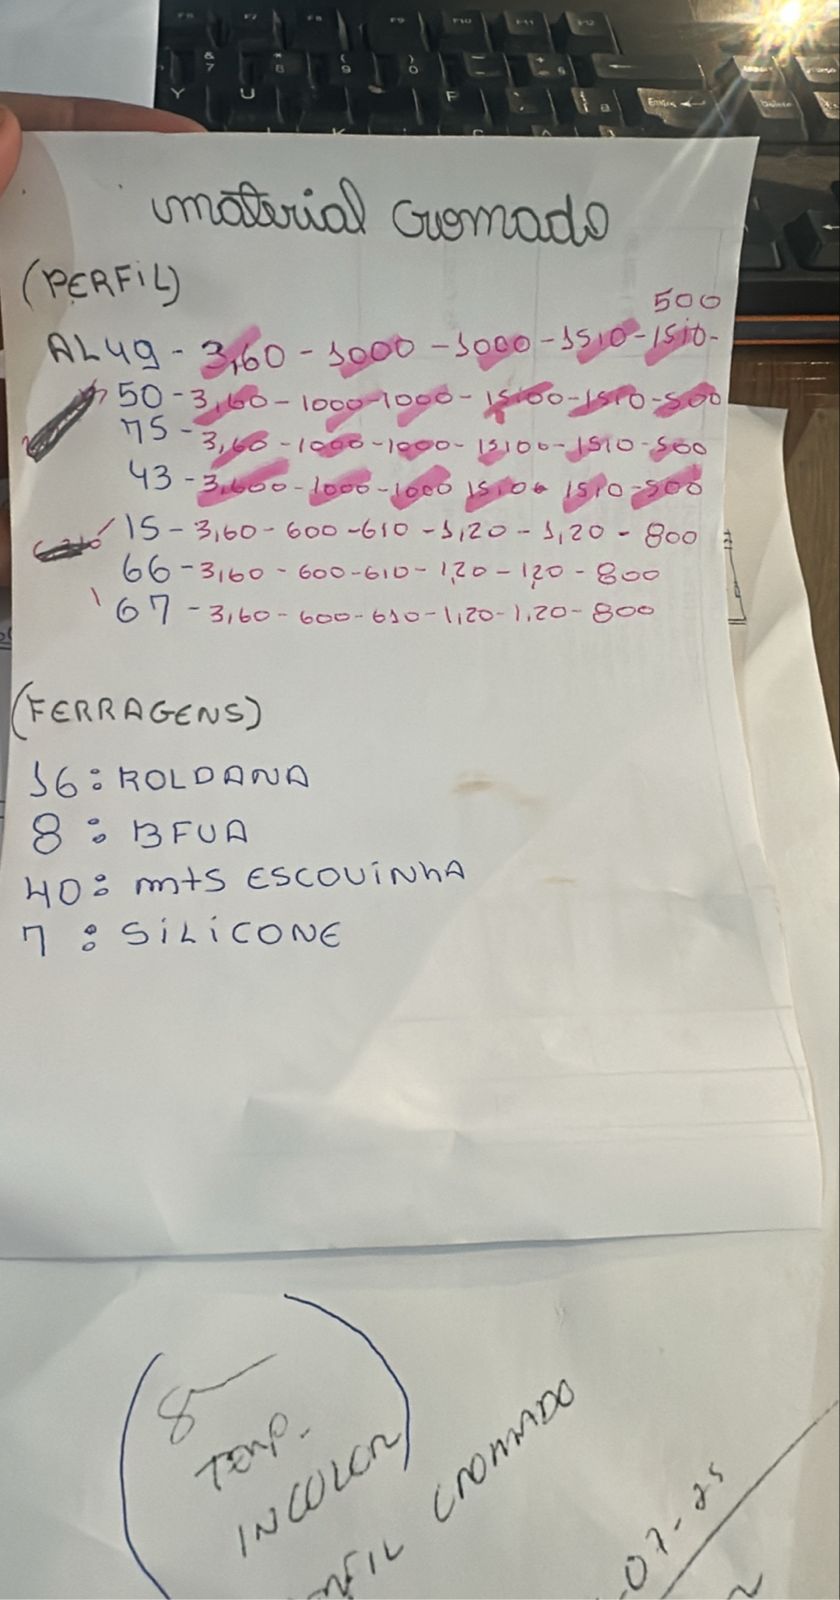 material cromado
(PERFIL)
500
AL49 - 3,60 - 1000 - 1000 - 1510 - 1510 -
50 - 3,60 - 1000 - 1000 - 15100 - 1510 - 500
75 - 3,60 - 1000 - 1000 - 15100 - 1510 - 500
43 - 3,600 - 1000 - 1000 1510 1510 - 500
15 - 3,60 - 600 - 610 - 1,20 - 1,20 - 800
66 - 3,60 - 600 - 610 - 1,20 - 1,20 - 800
67 - 3,60 - 600 - 610 - 1,20 - 1,20 - 800
(FERRAGENS)
16: ROLDANA
8: BFUA
40: mts ESCOVINHA
7: SILICONE
8
TEMP.
INCOLOR
CROMADO
07-25